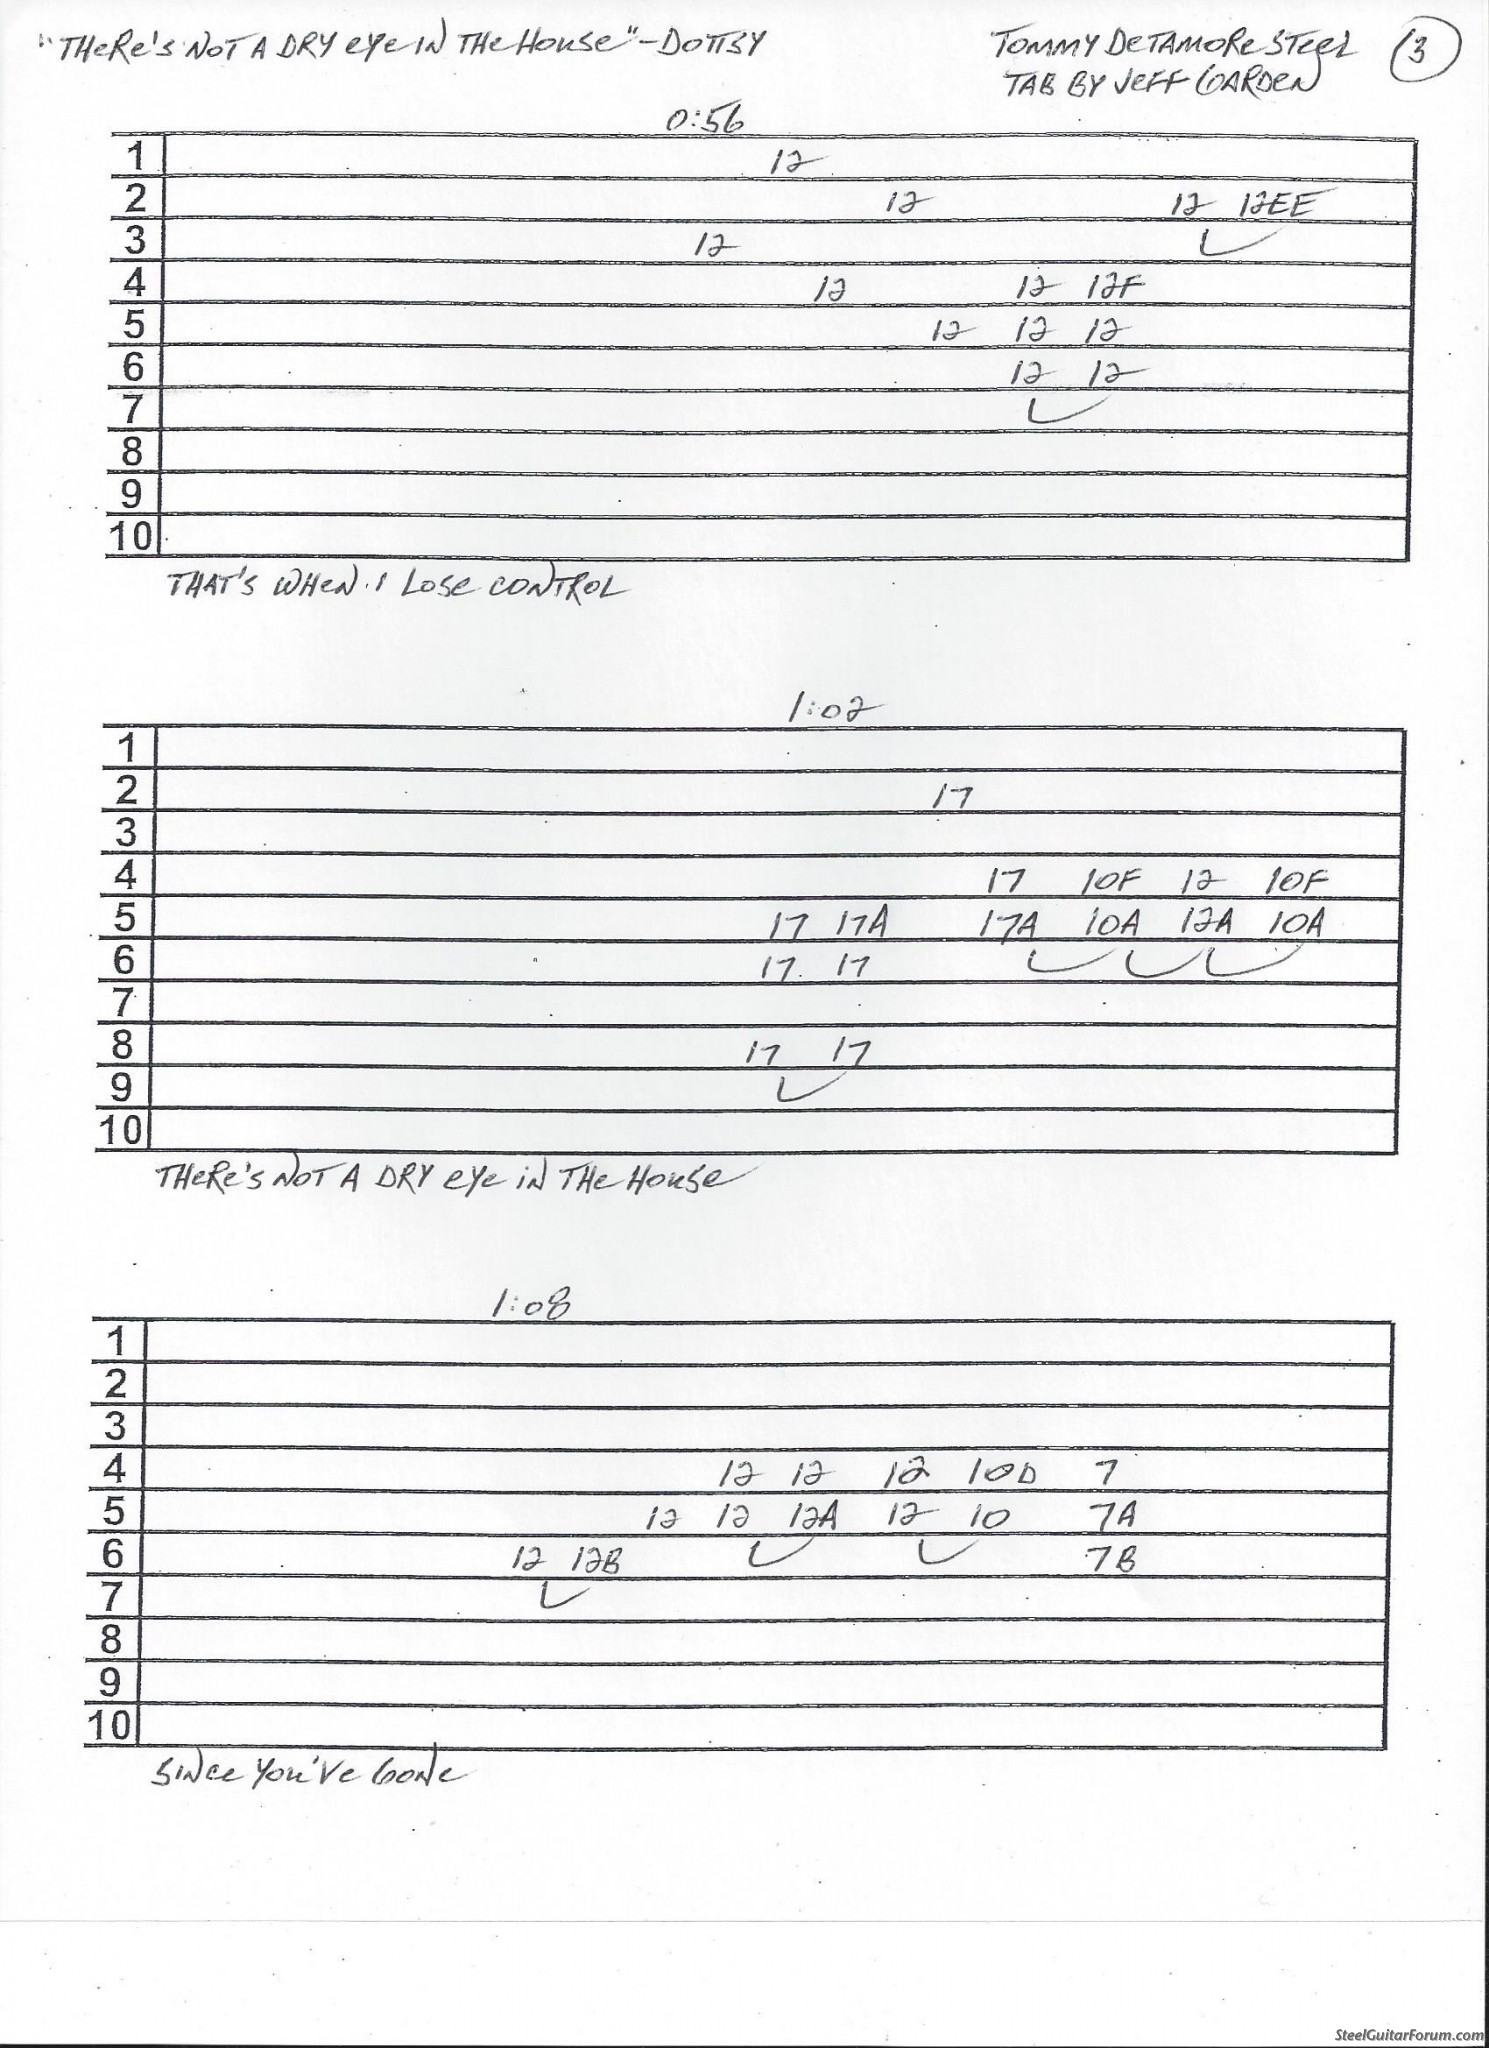 "There's Not A Dry Eye In The House" - Dottsy
Tommy Detamore Steel 3
Tab By Jeff Garden
0:56
1 12
2 12 12 12EE
3 12
4 12 12 12F
5 12 12 12
6 12 12
7
8
9
10
That's When I Lose Control
1:02
1
2 17
3
4 17 10F 12 10F
5 17 17A 17A 10A 12A 10A
6 17 17
7
8 17 17
9
10
There's Not A Dry Eye In The House
1:08
1
2
3
4 12 12 12 10D 7
5 12 12 12A 12 10 7A
6 12 12B 7B
7
8
9
10
Since You've Gone
SteelGuitarForum.com